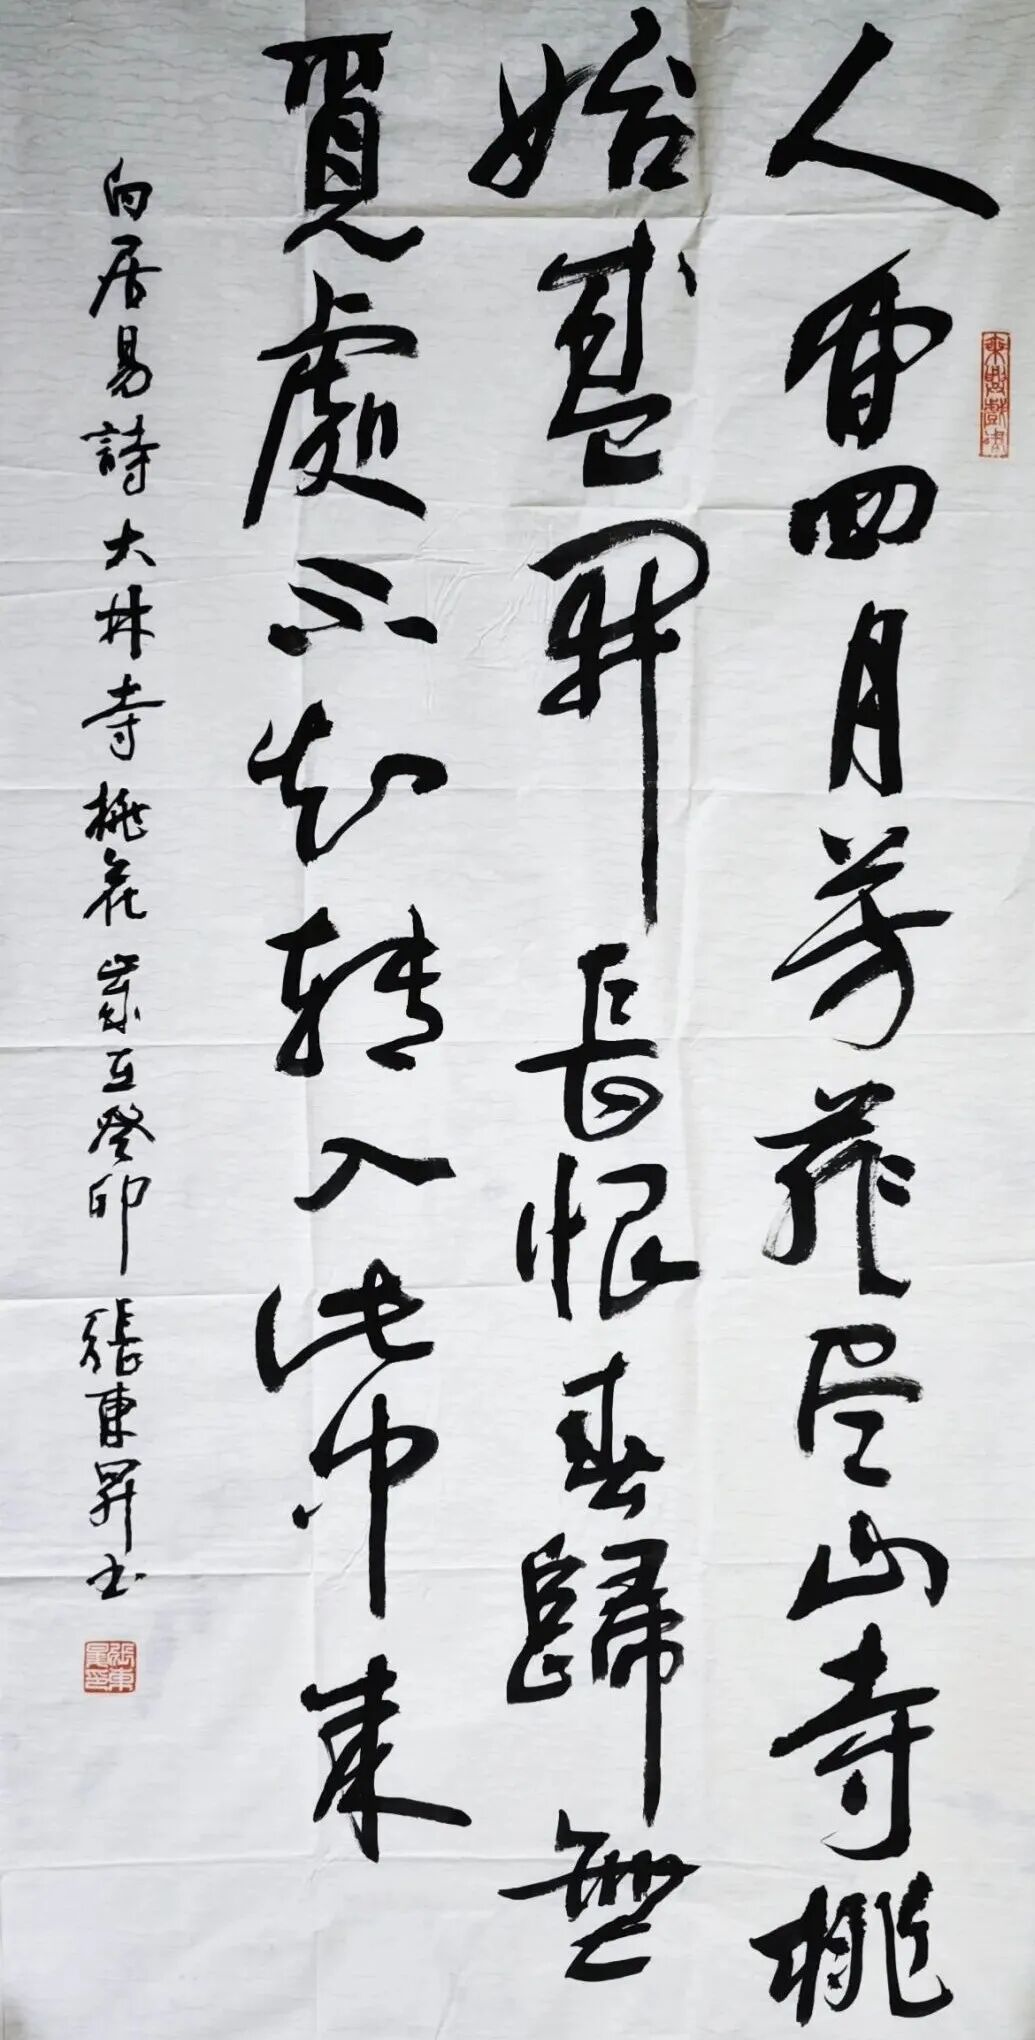 人間四月芳菲尽山寺桃
始盛開長恨春歸無
覓處不知轉入此中來
白居易詩大林寺桃花歲在癸卯張東昇书
張東昇印